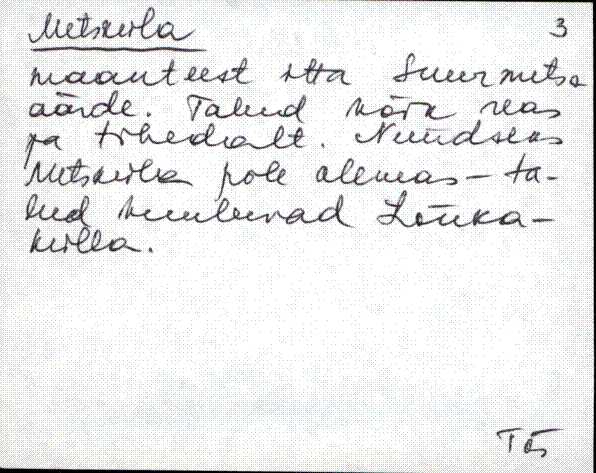 Metsküla 3
maanteest itta Suurmetsa
äärde. Talud kõik reas
ja tihedalt. Nüüdseks
Metsküla pole olemas – ta-
lud kuuluvad Lõuka-
külla.
Tõs